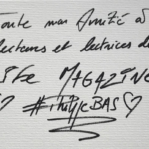 Toute mon Amitié à
lecteurs et lectrices de
MAGAZINE
♡ #PhilippeBAS♡